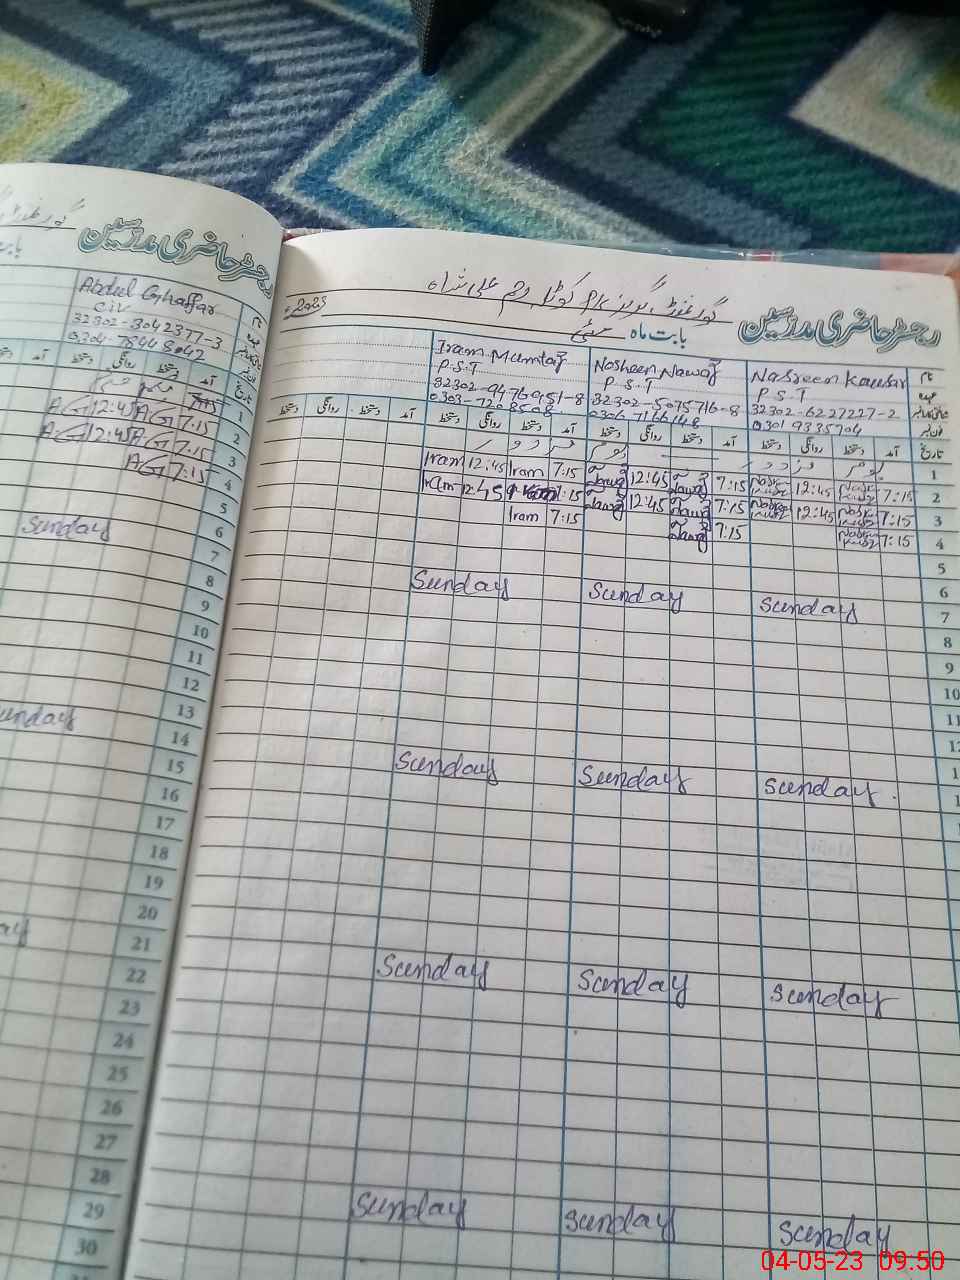 رجسٹر حاضری مدرسین
Abdul Ghaffar
CIV
32302-3042377-3
نام
عہدہ
تاریخ
آمد
دستخط
روانگی
دستخط
آمد
1
AG 12:45 AG 7:15
2
AG 12:45 AG 7:15
3
AG 7:15
4
5
6
Sunday
7
8
9
10
11
12
13
Sunday
14
15
16
17
18
19
20
21
22
23
24
25
26
27
28
29
30
رجسٹر حاضری مدرسین
بابت ماہ مئی 2023
نام
عہدہ
Iram Mumtaz
P.S.T
Nosheen Nawaz
P.S.T
32302-5075716-8
0306-7166148
Nasreen Kausar
P S T
32302-6227227-2
0301 9335704
دستخط روانگی دستخط آمد دستخط روانگی دستخط آمد دستخط روانگی دستخط آمد دستخط روانگی دستخط آمد تاریخ
1
Iram 12:45 Iram 7:15 12:45 7:15 12:45 7:15 2
Iram 12:45 7:15 12:45 7:15 12:45 7:15 3
Iram 7:15 7:15 7:15 4
5
6
Sunday Sunday Sunday 7
8
9
10
11
Sunday Sunday Sunday
Sunday Sunday Sunday
Sunday Sunday Sunday
04-05-23 09.50